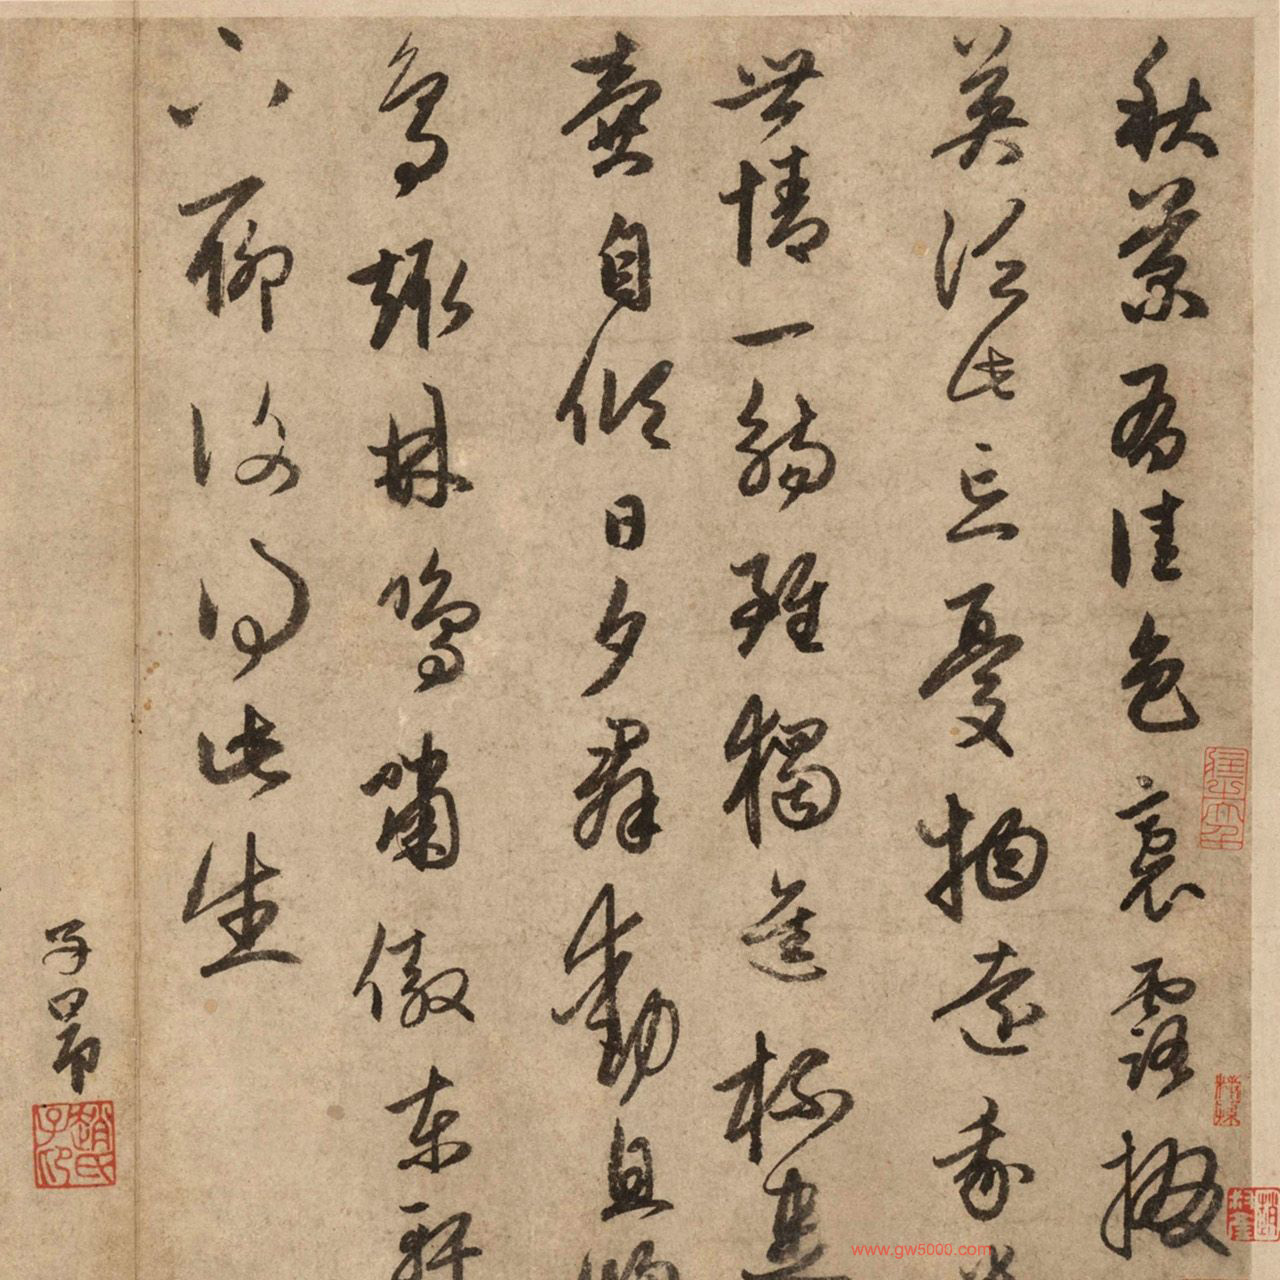 秋菊有佳色裛露掇
英泛此忘憂物遠我
世情一觴雖獨進杯盡
壺自傾日夕群動息
鳥趨林鳴嘯傲東軒
下聊復得此生
子昂
趙氏子昂
www.gw5000.com